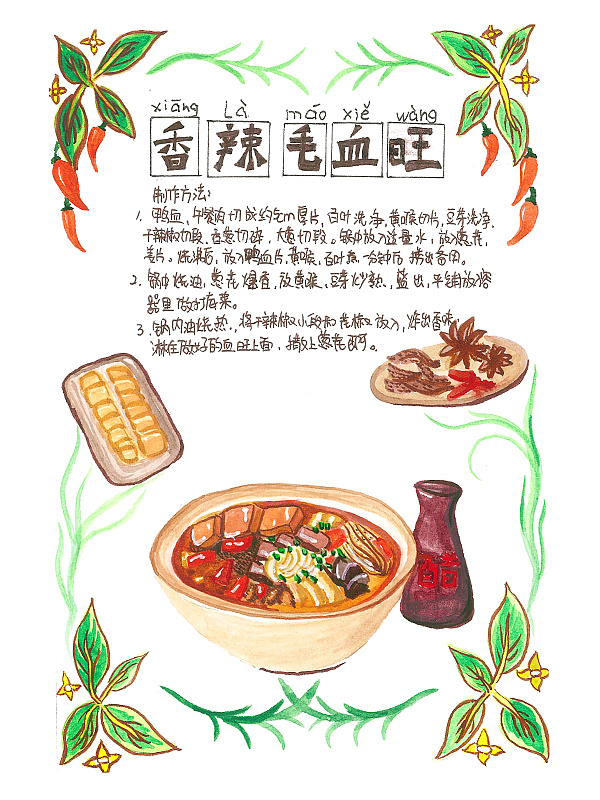 xiāng Là máo xiě wàng
香辣毛血旺
制作方法:
1. 鸭血、午餐肉切成约5cm厚片,百叶洗净,黄喉切片,豆芽洗净,
干辣椒切段,香葱切碎,大葱切段。锅中放入适量水,放入葱花,
姜片。烧沸后,放入鸭血片,黄喉,百叶煮一分钟后捞出备用。
2. 锅中烧油,葱花爆香,放黄喉、豆芽炒熟,盛出,平铺放容
器里做打底菜。
3. 锅内油烧热,将干辣椒小段和花椒放入,炸出香味,
淋在做好的血旺上面,撒上葱花即可。
醋